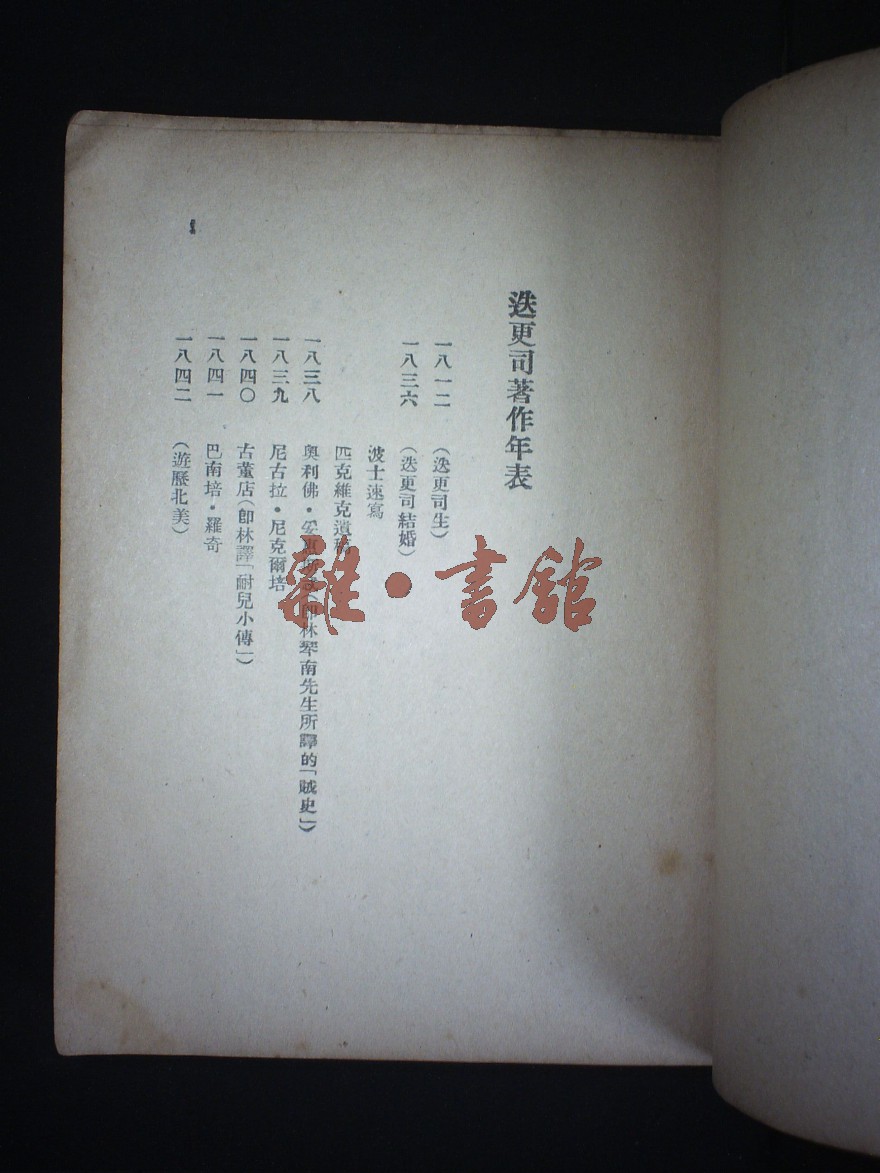 迭更司著作年表
一八一二 （迭更司生）
一八三六 （迭更司結婚）
波士速寫
匹克維克遺稿
一八三八 奧利佛·（即林琴南先生所譯的「賊史」）
一八三九 尼古拉·尼克爾培
一八四〇 古董店（即林譯「耐兒小傳」）
一八四一 巴南培·羅奇
一八四二 （遊歷北美）
1
雜·書館